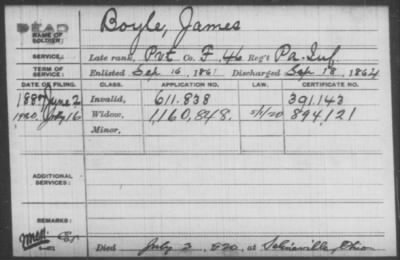 DEAD
NAME OF SOLDIER:
Boyle, James
SERVICE:
Late rank, Pvt Co. F. 46 Reg't Pa. Inf.
TERM OF SERVICE:
Enlisted Sep 16, 1861 Discharged Sep 18, 1864
DATE OF FILING. CLASS. APPLICATION NO. LAW. CERTIFICATE NO.
1887 June 2 Invalid, 611.838 391143
1920. July 16 Widow, 1160,848. 5/1/20 894,121
Minor,
ADDITIONAL SERVICES:
REMARKS:
Died July 3, 1920, at Salineville, Ohio